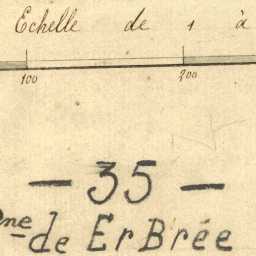 Echelle de 1 à
100 200
— 35 —
ne de ErBrée